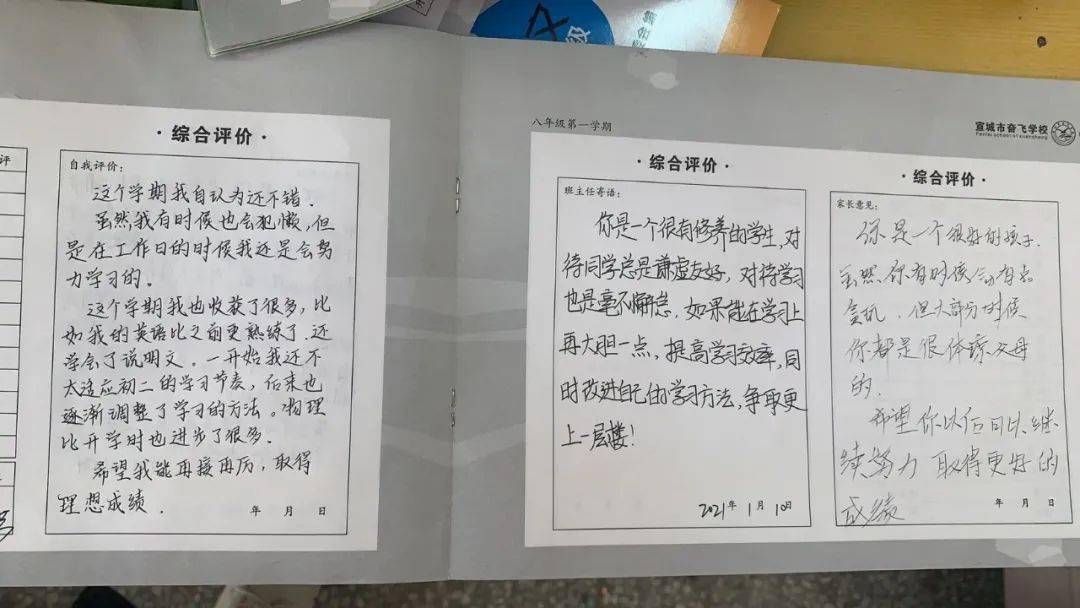 ·综合评价·
自我评价：
这个学期我自认为还不错．
虽然我有时候也会犯懒，但
是在工作日的时候我还是会努
力学习的．
这个学期我也收获了很多，比
如我的英语比之前更熟练了．还
学会了说明文．一开始我还不
太适应初二的学习节奏，后来也
逐渐调整了学习的方法。物理
比开学时也进步了很多．
希望我能再接再厉，取得
理想成绩．
年 月 日
评
八年级第一学期
宣城市奋飞学校
·综合评价·
班主任寄语：
你是一个很有修养的学生，对
待同学总是谦虚友好，对待学习
也是毫不懈怠．如果能在学习上
再大胆一点，提高学习效率，同
时改进自己的学习方法，争取更
上一层楼！
2021年 1月 10日
·综合评价·
家长意见：
你是一个很好的孩子．
虽然你有时候会有点
贪玩．但大部分时候
你都是很体谅父母
的．
希望你以后可以继
续努力 取得更好的
成绩
年 月 日